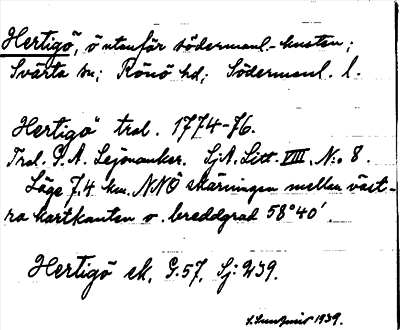 Hertigö, ö utanför södermanl.-kusten;
Svärta sn; Rönö hd; Södermanl. l.
Hertigö trol. 1774-76.
Trol. G.A. Lejonanker. SjA. Litt. VIII, N:o 8.
Läge 7.4 km. NNÖ skärningen mellan väst-
ra kartkanten o. breddgrad 58°40'.
Hertigö ek. G.57, Sj: 239.
1939.